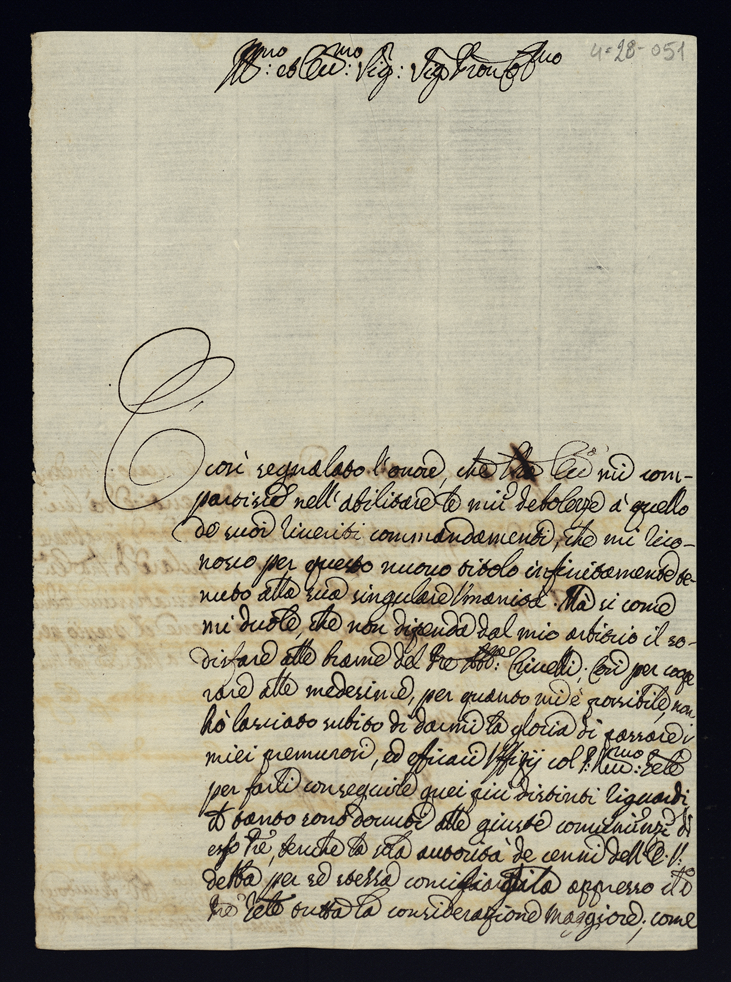 4-28-051
Ill:mo et Ecc:mo Sig: Sig Pron Col:mo
È così segnalato l'onore, che V.ra Ecc.a mi com-
partisce nell'abilitare le mie debolezze à quello
de suoi riveriti commandamenti, che mi rico-
nosco per questo nuovo titolo infinitamente te-
nuto alla sua singolare Umanità. Mà si come
mi duole, che non dipenda dal mio arbitrio il so-
disfare alle brame del Crivelli; così per coope
rare alle medesime, per quanto mi è possibile, non
hò lasciato subito di darmi la gloria di passare i
miei premurosi, ed efficaci Uffizij col
per farli conseguire quei più distinti riguardi,
che tanto sono dovuti alle giuste convenienze di
esso benche la sola autorità de cenni dell'E.V.
detta per se stessa appresso
tutta la considerazione maggiore; come